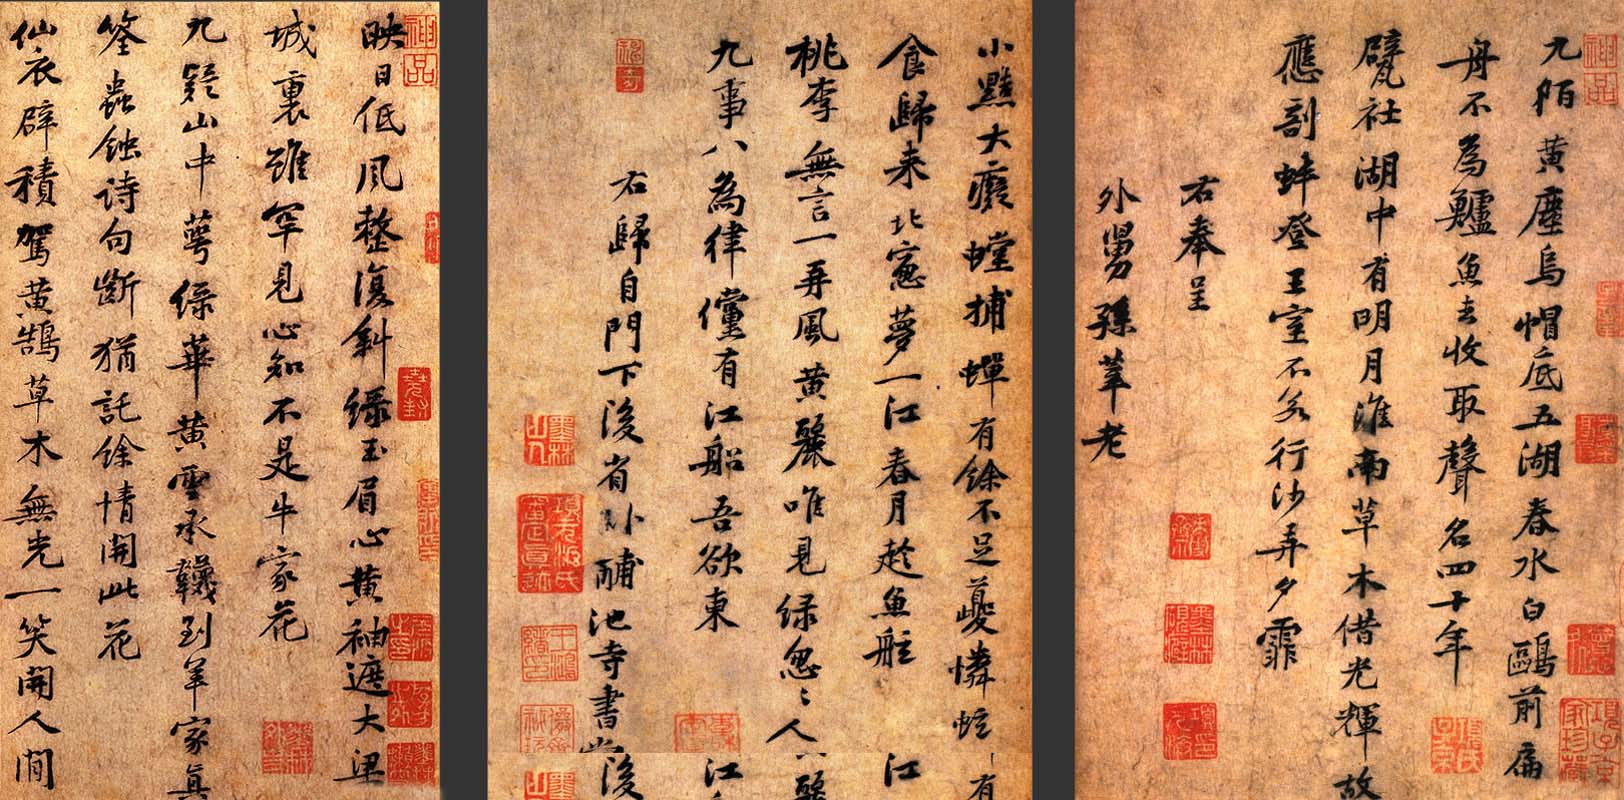 九陌黄塵烏帽底五湖春水白鷗前扁
舟不為鱸魚去收取聲名四十年
甓社湖中有明月淮南草木借光輝故
應剖蚌登王室不若行沙弄夕霏
右奉呈
外舅孫莘老
神品
小黠大癡螳捕蟬有餘不足夔憐蚿
食歸来北窻夢一江春月趁魚船
桃李無言一再風黄鸝唯見緑怱々人
九事八為律儻有江船吾欲東
右歸自門下後省卧酺池寺書堂
有
江
江
後
映日低風整復斜緑玉眉心黄袖遮大梁
城裏雖罕見心知不是牛家花
九疑山中萼緑華黄雲承襪到羊家真
筌蟲蝕詩句斷猶託餘情開此花
仙衣襞積駕黄鵠草木無光一笑開人間
神品